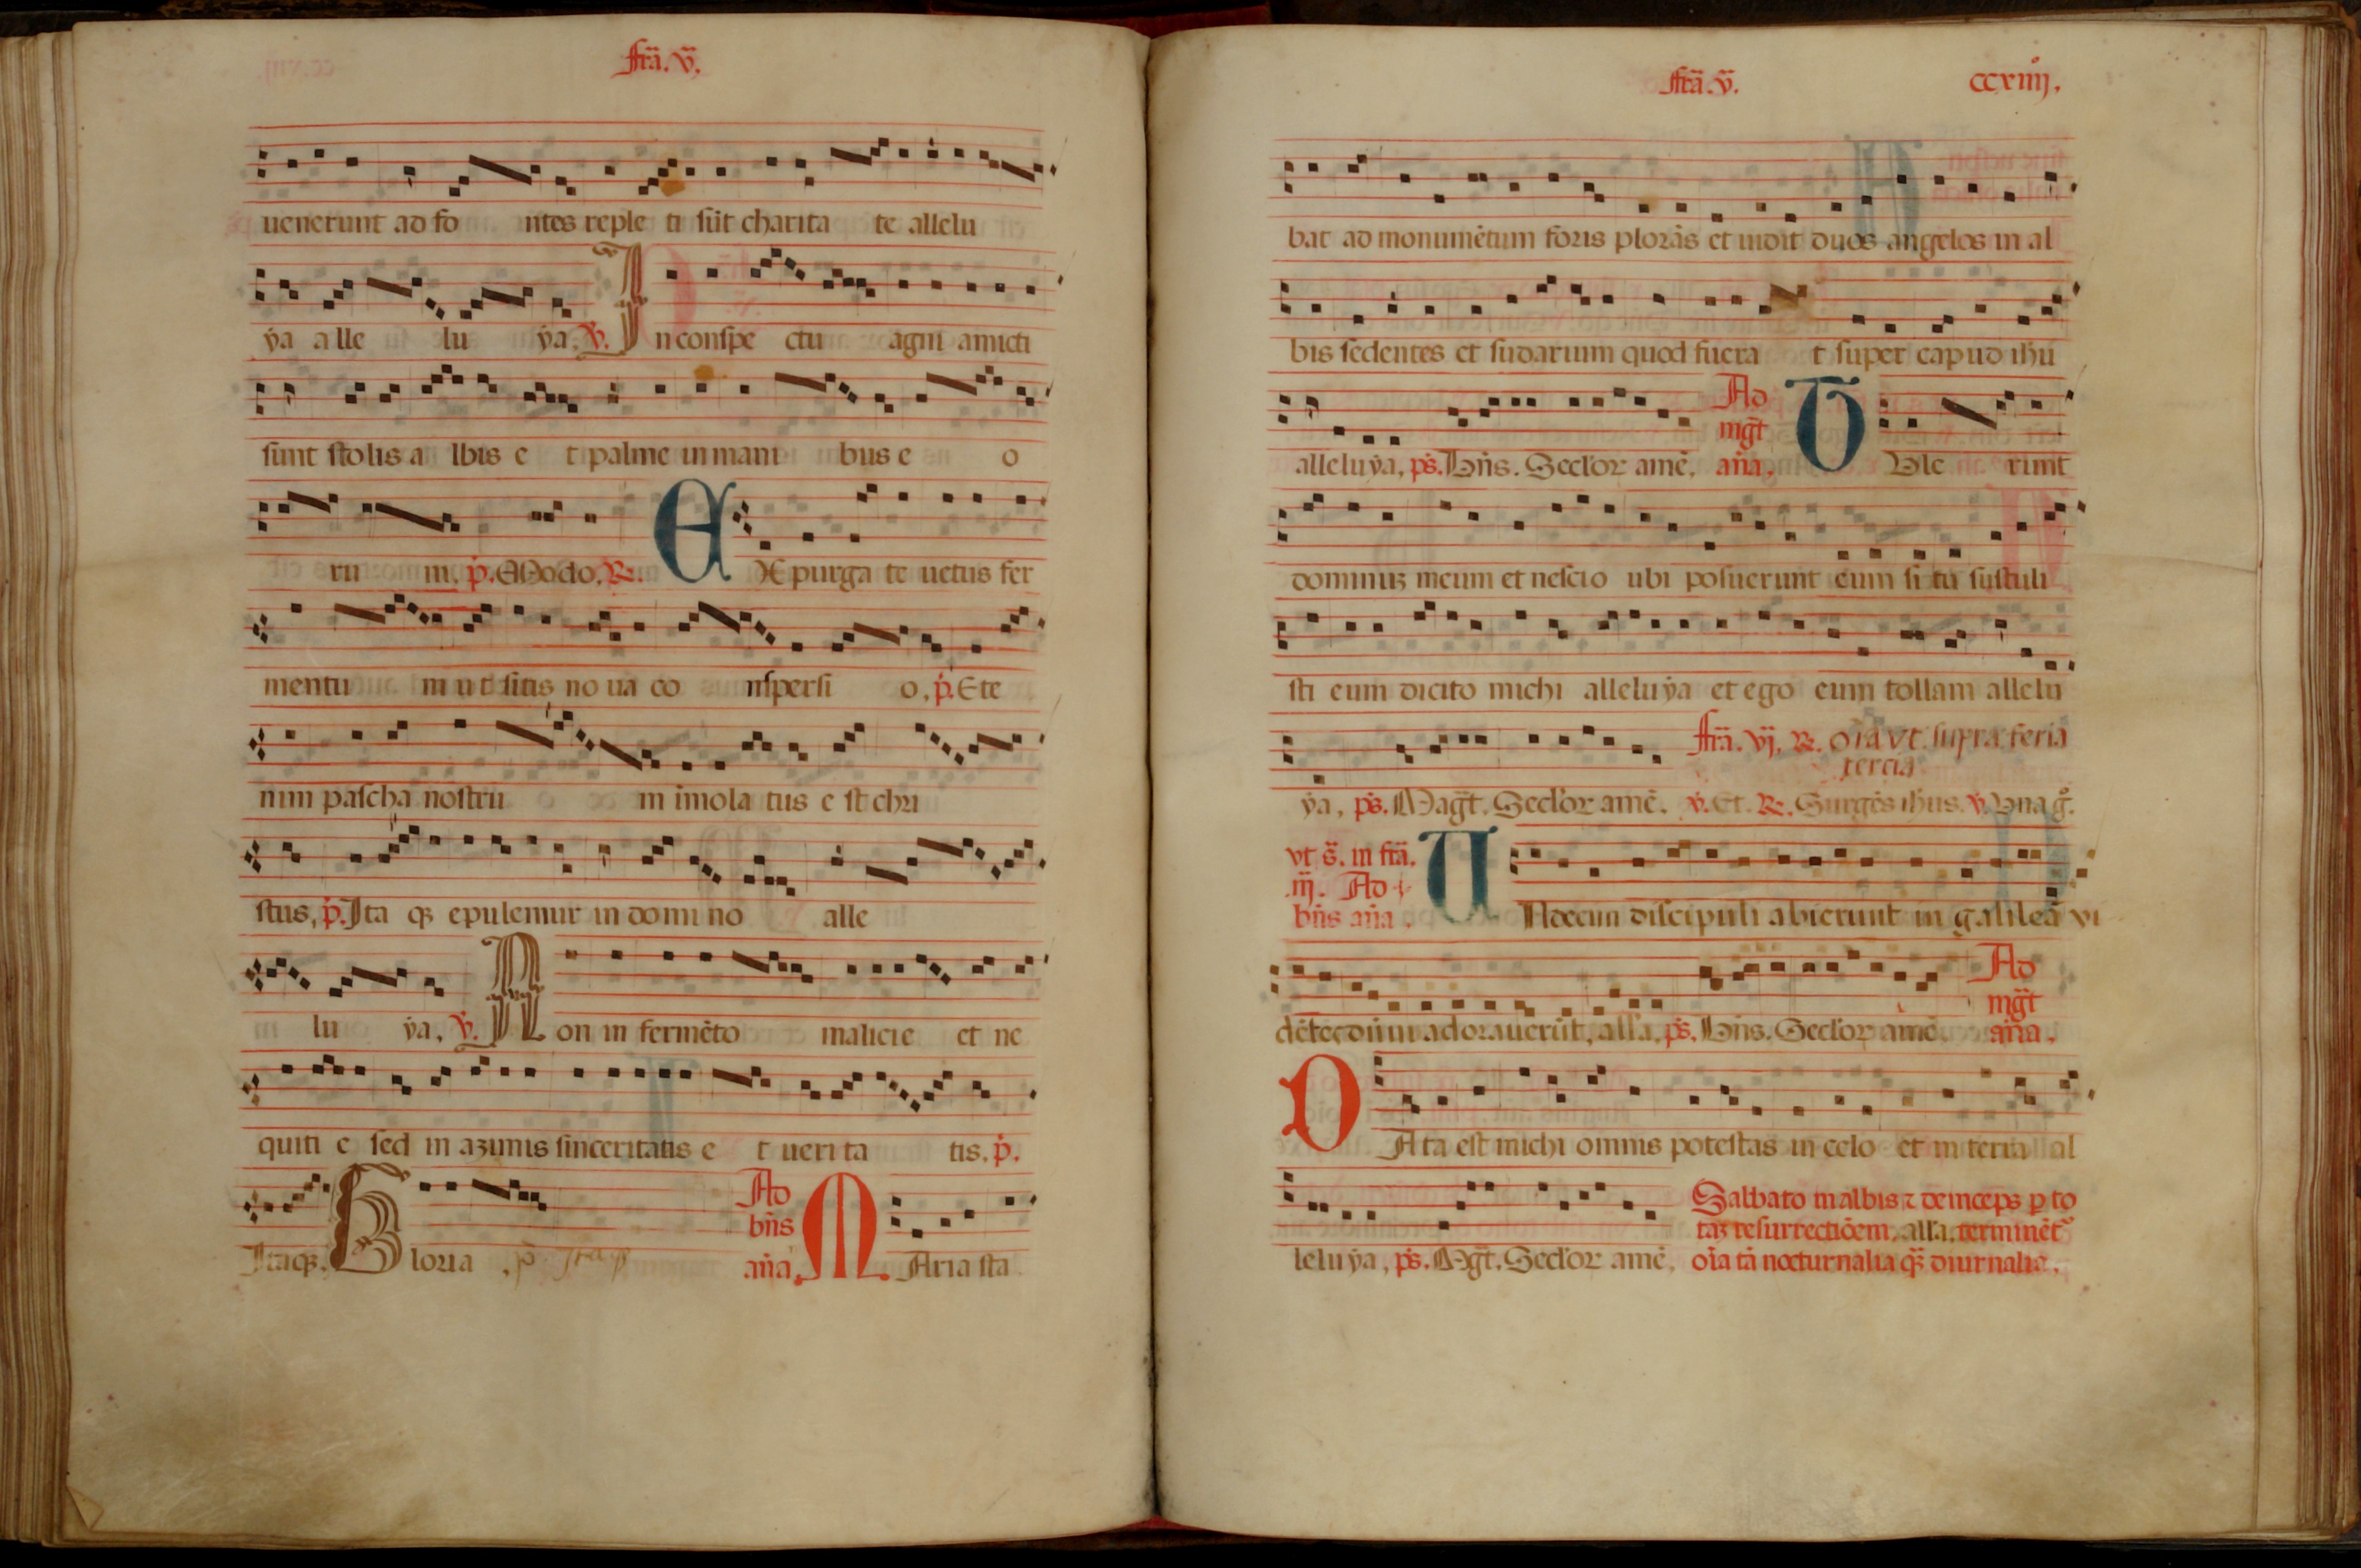 fr̃a. v̄.
uenerunt ad fo ntes reple ti sūt charita te allelu
ẏa alle lu ẏa. ℣. In conspe ctu agni amicti
sunt stolis a lbis e t palme in mani bus e o
ru m. p̄. Modo. ℟. EXpurga te uetus fer
mentu m ut sitis no ua co nspersi o. p̄. Ete
nim pascha nostru m imola tus e st chri
stus. p̄. Ita qꝫ epulemur in domi no alle
lu ẏa. ℣. Non in fermēto malicie et ne
quiti e sed in azimis sinceritatis e t ueri ta tis. p̄.
Itaqꝫ. Gloria . p̄ Itaqꝫ
Ad
bn̄s
an̄a. MAria sta
fr̃a. v̄. ccxiiij.
bat ad monumētum foris plorās et uidit duos angelos in al
bis sedentes et sudarium quod fuera t super capud ihu
Ad
mḡt
alleluẏa. ps̄. Bn̄s. Seclor amē. an̄a. TVle runt
dominuꝫ meum et nescio ubi posuerunt eum si tu sustuli
sti eum dicito michi alleluẏa et ego eum tollam allelu
fr̃a. vj. ℟. oīa vt. supra. feria
tercia
ẏa. ps̄. Magt̄. Seclor amē. ℣. Et. ℟. Surgēs ihus. ℣. Una g̊.
vt s̄. in fr̃a.
iij. Ad
bn̄s an̄a. UNdecim discipuli abierunt in galileā vi
dētes dn̄m adorauerūt, alla. ps̄. Bn̄s. Seclor amē.
Ad
mḡt
an̄a.
DAta est michi omnis potestas in celo et in terra al
leluẏa, ps̄. Mgt̄. Seclor amē.
Sabbato in albis ⁊ deinceps ꝑ to
taꝫ resurrectiōem. alla. terminēt᷒
oīa tā nocturnalia qꝫ̄ diurnalia.